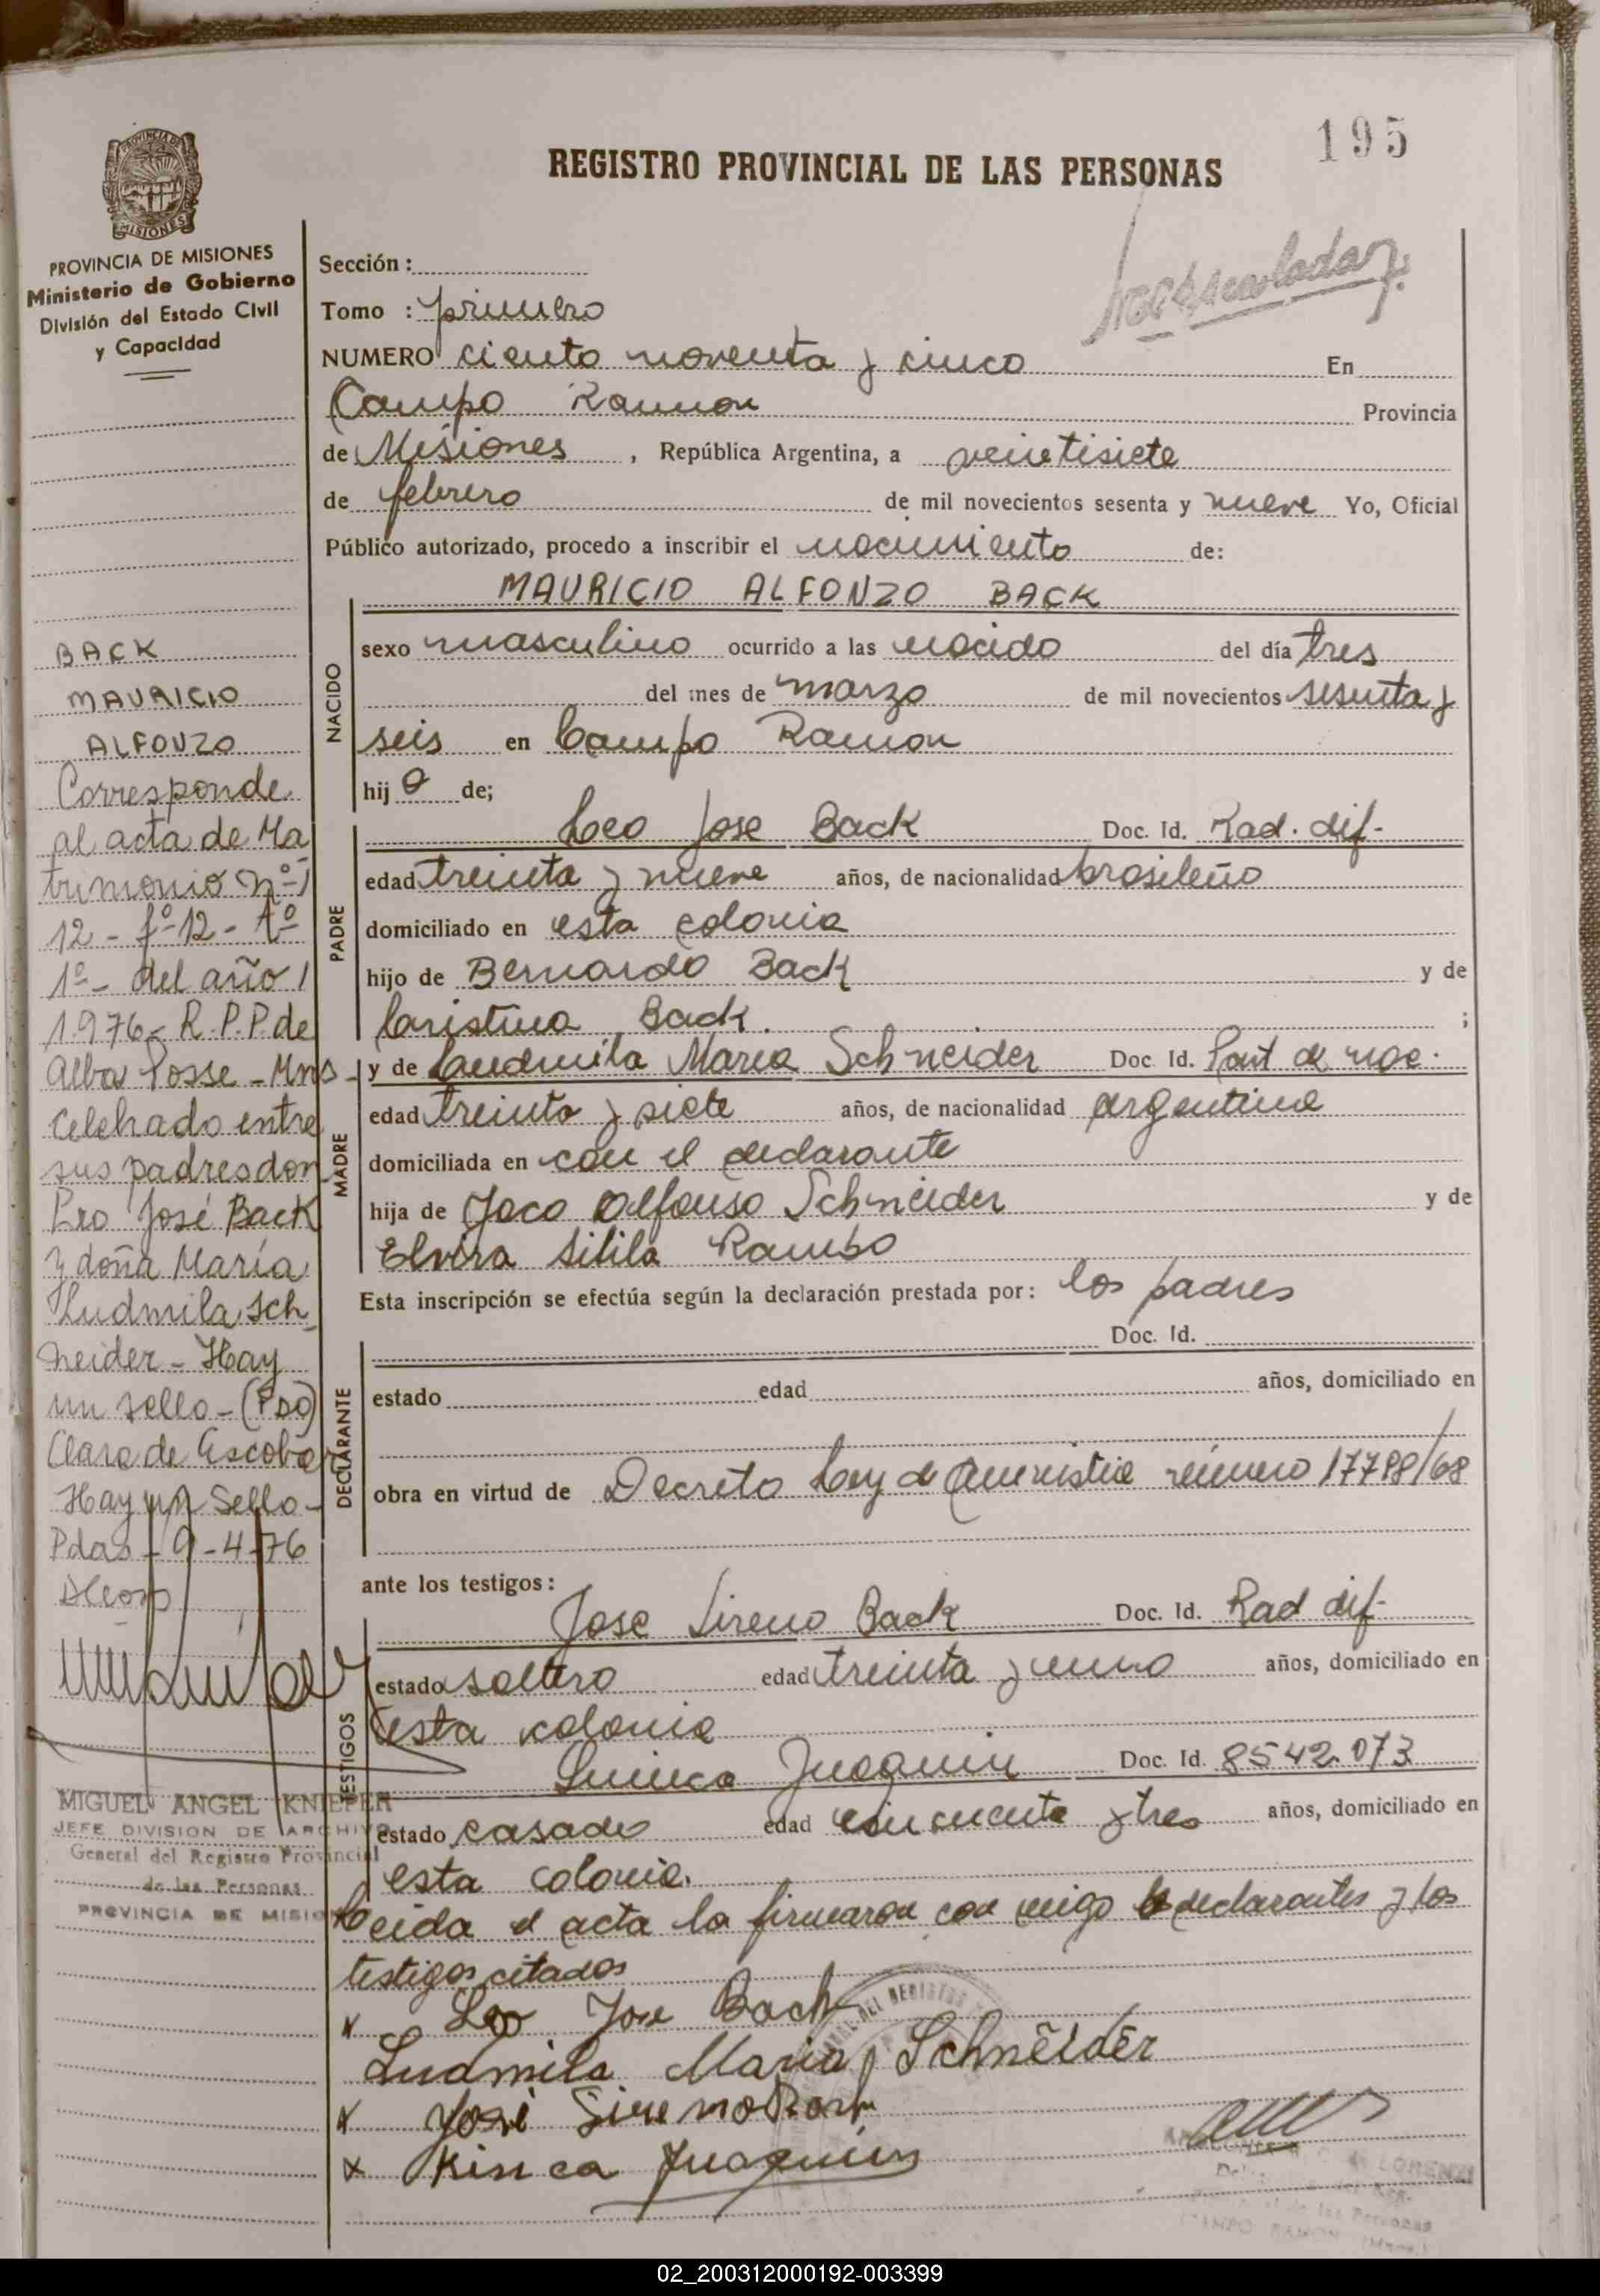 195
REGISTRO PROVINCIAL DE LAS PERSONAS
PROVINCIA DE MISIONES
Ministerio de Gobierno
División del Estado Civil
y Capacidad
Sección :
Tomo : primero
NUMERO ciento noventa y cinco En
Campo Ramon Provincia
de Misiones , República Argentina, a veintisiete
de febrero de mil novecientos sesenta y nueve Yo, Oficial
Público autorizado, procedo a inscribir el nacimiento de:
MAURICIO ALFONZO BACK
NACIDO
sexo masculino ocurrido a las nacido del día tres
del mes de marzo de mil novecientos sesenta y
seis en Campo Ramon
hij o de;
PADRE
Leo Jose Back Doc. Id. Rad. dif-
edad treinta y nueve años, de nacionalidad brasileño
domiciliado en esta colonia
hijo de Bernardo Back y de
Cristina Back. ;
MADRE
y de Ludmila Maria Schneider Doc. Id. Part de nac.
edad treinta y siete años, de nacionalidad argentina
domiciliada en con el declarante
hija de Jaco Alfonso Schneider y de
Elvira Silila Rambo
Esta inscripción se efectúa según la declaración prestada por: los padres
DECLARANTE
Doc. Id.
estado edad años, domiciliado en
obra en virtud de Decreto Ley de Amnistia número 17798/68
ante los testigos:
TESTIGOS
Jose Sireno Back Doc. Id. Rad dif-
estado soltero edad treinta y uno años, domiciliado en
esta colonia
Juaquin Doc. Id. 8542.073
estado casado edad cincuenta y tres años, domiciliado en
esta colonia.
Leida el acta la firmaron con migo los declarantes y los
testigos citados
x Leo Jose Back
Ludmila Maria Schneider
x José Sireno Back
x Kinca Juaquin
BACK
MAURICIO
ALFONZO
Corresponde
al acta de Ma
trimonio nº
12 - fº 12 - tº
1º - del año
1976 - R.P.P. de
Alba Posse - Mns -
Celebrado entre
sus padres don
Leo José Back
y doña María
Ludmila Sch
neider - Hay
un sello - (Fdo)
Clara de Escobar
Hay un Sello -
Pdas - 9-4-76
MIGUEL ANGEL KNIEPER
JEFE DIVISION DE ARCHIVO
General del Registro Provincial
de las Personas
PROVINCIA DE MISIO
02_200312000192-003399